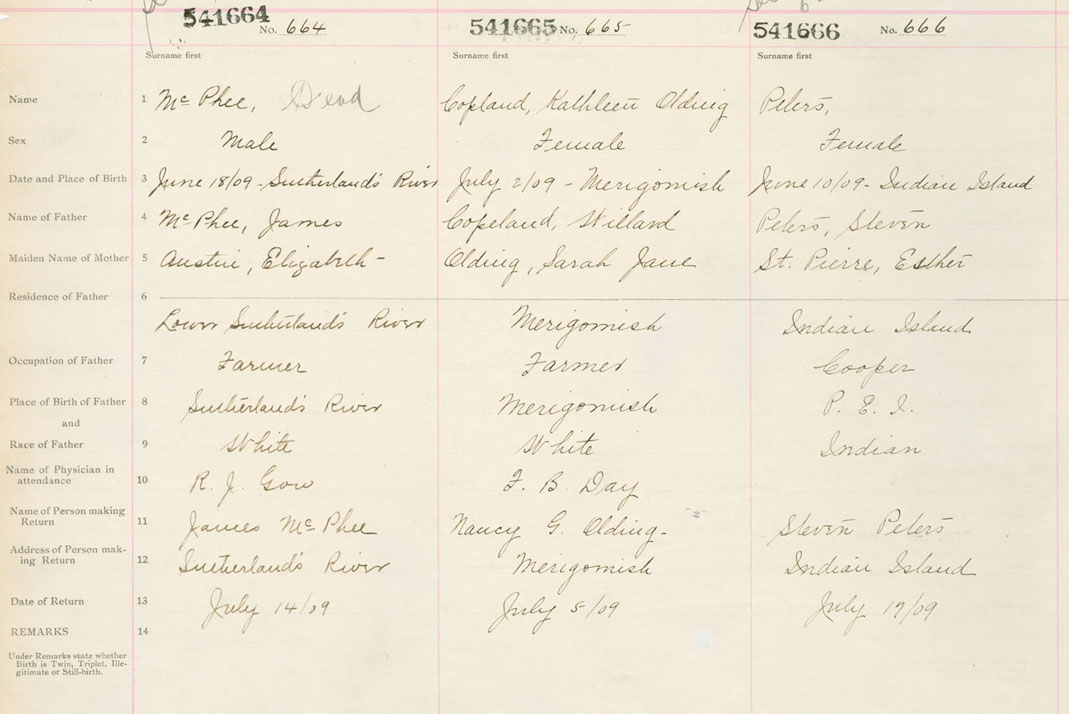 541664 No. 664 541665 No. 665 541666 No. 666
Surname first Surname first Surname first
Name 1 Mc Phee, Dead Copland, Kathleen Olding Peters,
Sex 2 Male Female Female
Date and Place of Birth 3 June 18/09 - Sutherland's River July 2/09 - Merigomish June 10/09 - Indian Island
Name of Father 4 Mc Phee, James Copeland, Willard Peters, Steven
Maiden Name of Mother 5 Austin, Elizabeth - Olding, Sarah Jane St. Pierre, Esther
Residence of Father 6
Lower Sutherland's River Merigomish Indian Island
Occupation of Father 7 Farmer Farmer Cooper
Place of Birth of Father 8 Sutherland's River Merigomish P. E. I.
and
Race of Father 9 White White Indian
Name of Physician in
attendance 10 R. J. Gow F. B. Day
Name of Person making
Return 11 James Mc Phee Nancy G. Olding - Steven Peters
Address of Person mak-
ing Return 12 Sutherland's River Merigomish Indian Island
Date of Return 13 July 14/09 July 5/09 July 17/09
REMARKS 14
Under Remarks state whether
Birth is Twin, Triplet, Ille-
gitimate or Still-birth.